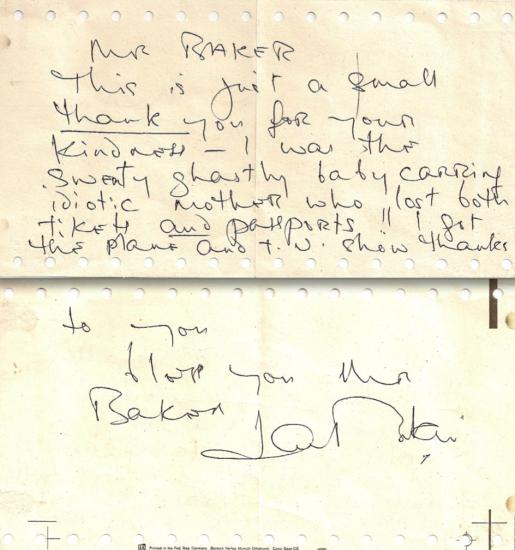 Mr BAKER
This is just a small
thank you for your
Kindness – I was the
Sweaty ghastly baby carring
idiotic mother who lost both
tikets and passports !! I got
the plane and T.V. show thanks
to you
bless you Mr
Baker
Printed in the Fed. Rep. Germany